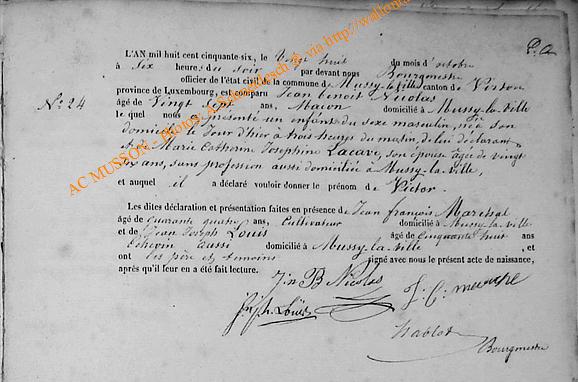 P. A
L'AN mil huit cent cinquante-six, le Vingt huit du mois d'octobre
à Six heure, du Soir par devant nous Bourgmestre
officier de l'état civil de la commune de Mussy-la-Ville canton de Virton
province de Luxembourg, est comparu Jean Nicolas
N° 24
âgé de Vingt Sept ans, Macon domicilié à Mussy-la-Ville
lequel nous a présenté un enfant du sexe masculin, née son
domicile le Jour d'hier à trois heures du matin, de lui déclarant
et de Marie Catherine Josephine Lacave, son épouse âgée de vingt
six ans, sans profession aussi domiciliée à Mussy-la-Ville,
et auquel il a déclaré vouloir donner le prénom de Victor.
Les dites déclaration et présentation faites en présence de Jean François Maréchal
âgé de quarante quatre ans, Cultivateur domicilié à Mussy-la-Ville
et de Jean Joseph Louis âgé de Cinquante huit ans
Echevin aussi domicilié à Mussy-la-Ville, et
ont les père et temoins signé avec nous le présent acte de naissance,
après qu'il leur en a été fait lecture.
J n B Nicolas
Louis
Hablot
Bourgmestre
AC MUSSON - Photos: via http://wallon